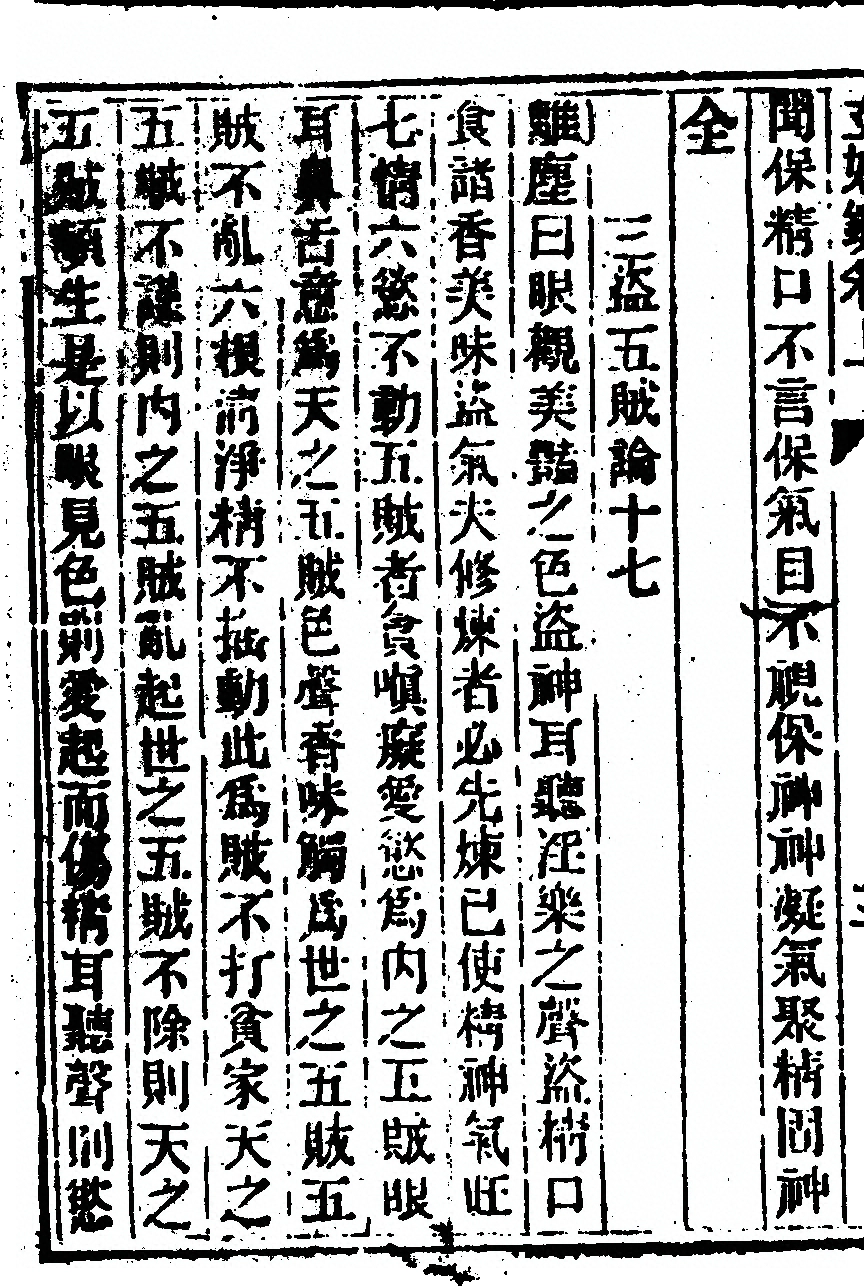 聞保精口不言保氣目不視保神神凝氣聚精固神
全
三盜五賊論十七
離塵曰眼觀美豔之色盜神耳聽淫樂之聲盜精口
食諸香美味盜氣夫修煉者必先煉己使精神氣旺
七情六慾不動五賊者貪嗔癡愛慾爲內之五賊眼
耳鼻舌意爲天之五賊色聲香味觸爲世之五賊五
賊不亂六根清淨精不搖動此爲賊不打貧家天之
五賊不謹則內之五賊亂起世之五賊不除則天之
五賊頓生是以眼見色則愛起而傷精耳聽聲則慾